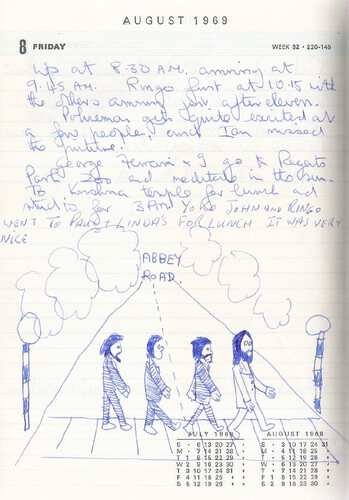 AUGUST 1969
8 FRIDAY
WEEK 32 • 220-145
Up at 8.30 A.M. arriving at
9.45 AM. Ringo first at 10.15 with
the others arriving just after eleven.
Policeman gets quite excited at
a few people, and Ian missed
the
George Ferrari & I go to Regents
Park Zoo and meditate in the sun.
To Krishna temple for lunch and
studio for 3 PM
JOHN AND RINGO
WENT TO PAUL + LINDA'S FOR LUNCH IT WAS VERY
NICE
ABBEY
ROAD.
JULY 1969
S • 6 13 20 27 •
M • 7 14 21 28 •
T 1 8 15 22 29 •
W 2 9 16 23 30 •
T 3 10 17 24 31 •
F 4 11 18 25 • •
S 5 12 19 26 • •
AUGUST 1969
S • 3 10 17 24 31
M • 4 11 18 25 •
T • 5 12 19 26 •
W • 6 13 20 27 •
T • 7 14 21 28 •
F 1 8 15 22 29 •
S 2 9 16 23 30 •